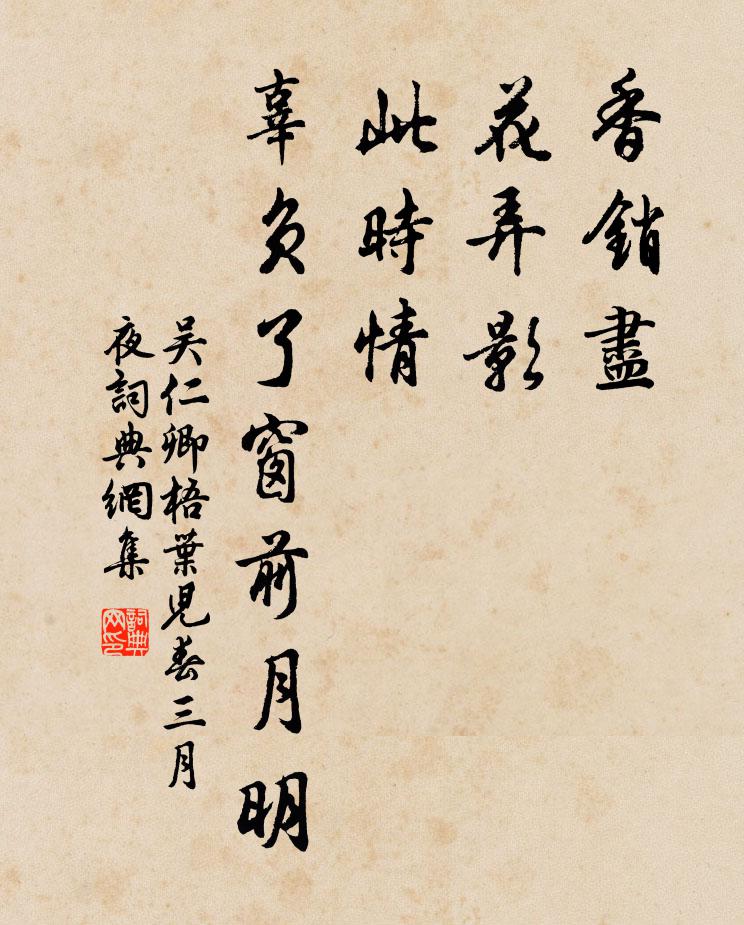 香銷盡
花弄影
此時情
辜负了窗前月明
吴仁卿梧葉児春三月
夜詞典網集
詞典
网印